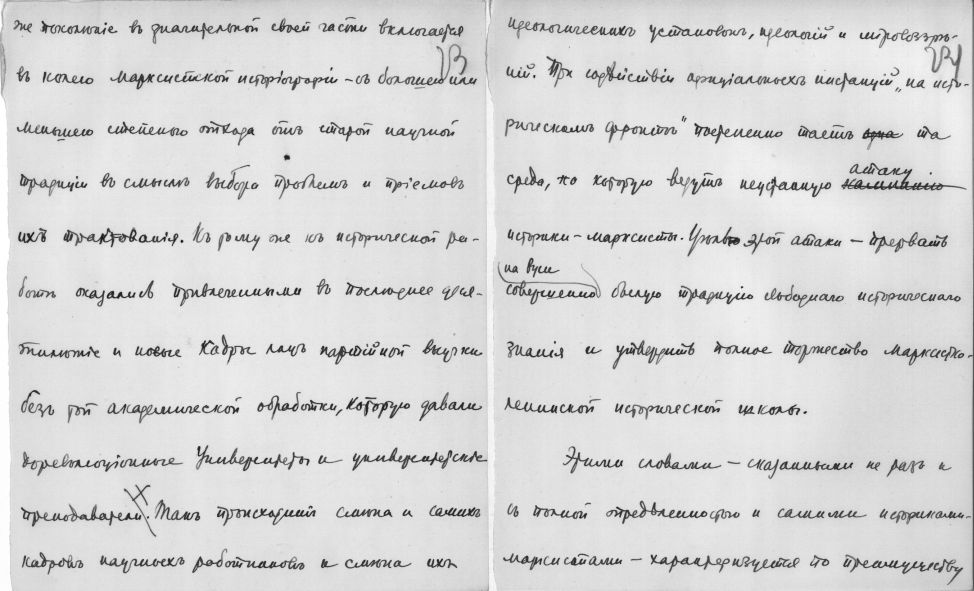 же поколѣніе въ значительной своей части включается
въ колею марксистской исторіографіи – съ большею или
меньшею степенью отхода отъ старой научной
традиціи въ смыслѣ выбора проблемъ и пріемовъ
ихъ трактованія. Къ тому же къ исторической ра-
ботѣ оказались привлеченными въ послѣднее деся-
тилѣтіе и новые кадры лицъ партійной выучки
безъ той академической обработки, которую давали
дореволюціонные Университеты и университетскіе
преподаватели. Такъ происходитъ смѣна и самихъ
кадровъ научныхъ работниковъ и смѣна ихъ
идеологическихъ установокъ, идеологій и міровоззрѣ-
ній. При содѣйствіи официальныхъ инстанцій „на исто-
рическомъ фронтѣ" постепенно таетъ одна та
среда, на которую ведутъ неустанную кампанію атаку
историки-марксисты. Цѣль этой атаки – прервать
совершенно на Руси былую традицію свободнаго историческаго
знанія и утвердить полное торжество марксистко-
ленинской исторической школы.
Этими словами – сказанными не разъ и
съ полной опредѣленностью и самими историками-
марксистами – характеризуется по преимуществу